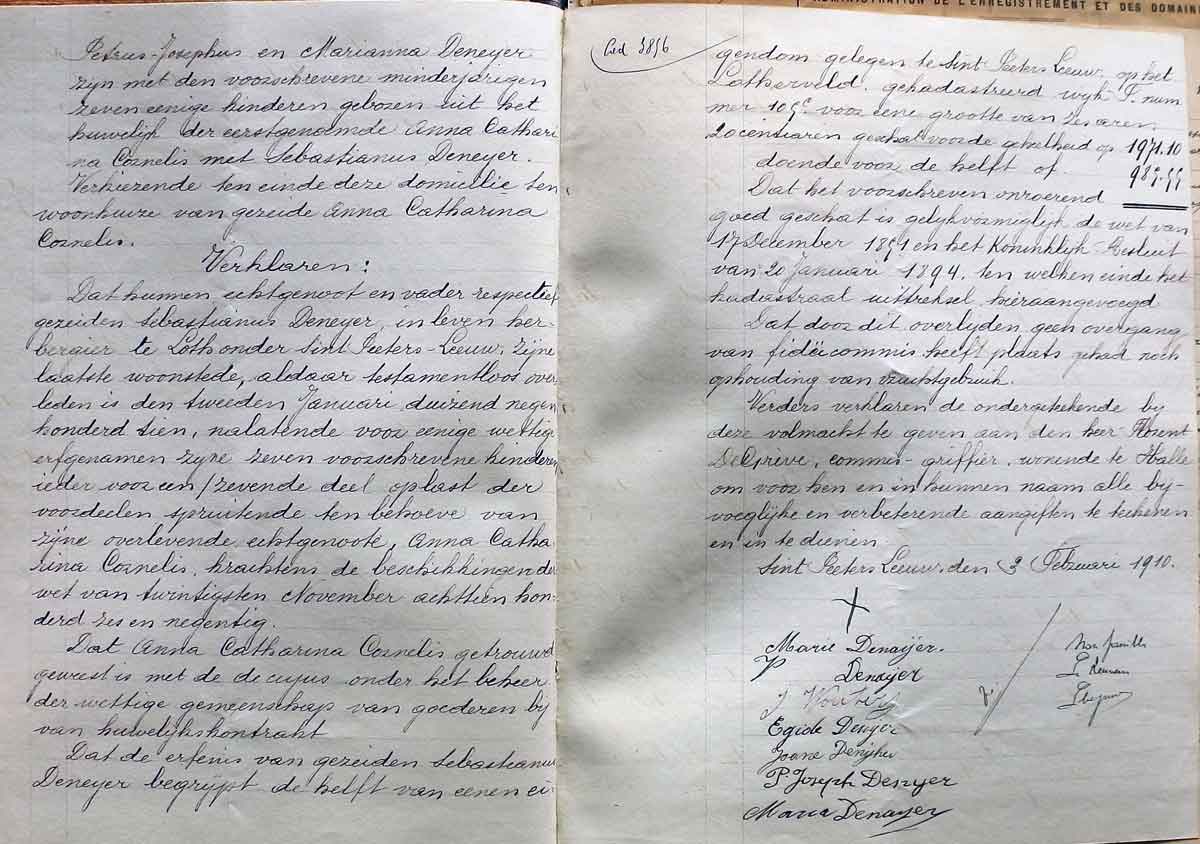 Petrus-Josephus en Marianna Deneyer
zyn met den voorschrevene minderjarigen
zeven eenige kinderen geboren uit het
huwelijk der eerstgenoemde Anna Cathari
na Cornelis met Sebastianus Deneyer.
Verkiezende ten einde deze domicilie ten
woonhuize van gezeide Anna Catharina
Cornelis.
Verklaren:
Dat hunnen echtgenoot en vader respectief
gezeiden Sebastianus Deneyer, in leven her-
bergier te Loth onder Sint Peeters-Leeuw, zyne
laatste woonstede, aldaar testamentloos over
leden is den tweeden Januari duizend negen
honderd tien, nalatende voor eenige wettige
erfgenamen zyne zeven voorschrevene kinderen
ieder voor een/zevende deel oplast der
voordeelen spruitende ten behoeve van
zyne overlevende echtgenoote, Anna Catha
rina Cornelis, krachtens de beschikkingen der
wet van twintigsten November achttien hon-
derd zes en negentig.
Dat Anna Catharina Cornelis getrouwd
geweest is met de decujus onder het beheer
der wettige gemeenschap van goederen by
van huwelijkskontrakt
Dat de erfenis van gezeiden Sebastianus
Deneyer begrypt de helft van eenen ei-
ADMINISTRATION DE L'ENREGISTREMENT ET DES DOMAINE
3856
gendom gelegen te Sint Peeters Leeuw, op het
Lotherveld, gekadastreerd wyk F. num
mer voor eene grootte van zes aren
20 centiaren geschat voor de geheelheid op 1971.10
doende voor de helft of 985.55
Dat het voorschreven onroerend
goed geschat is gelykvormiglyk de wet van
17 December 1851 en het Koninklyk-Besluit
van 20 Januari 1894. ten welken einde het
kadastraal uittreksel, hieraangevoegd
Dat door dit overlyden geen overgang
van fidëicommis heeft plaats gehad noch
ophouding van vruchtgebruik.
Verders verklaren de ondergeteekende by
deze volmacht te geven aan den heer Florent
De Grève, commis-griffier, wonende te Halle
om voor hen en in hunnen naam alle by-
voeglyke en verbeterende aangiften te teekenen
en in te dienen.
Sint Peeters Leeuw, den 3 Februari 1910.
Marie Denaÿer.
Denaÿer
Egide Denyer
P Joseph Denyer
Maria Denayer